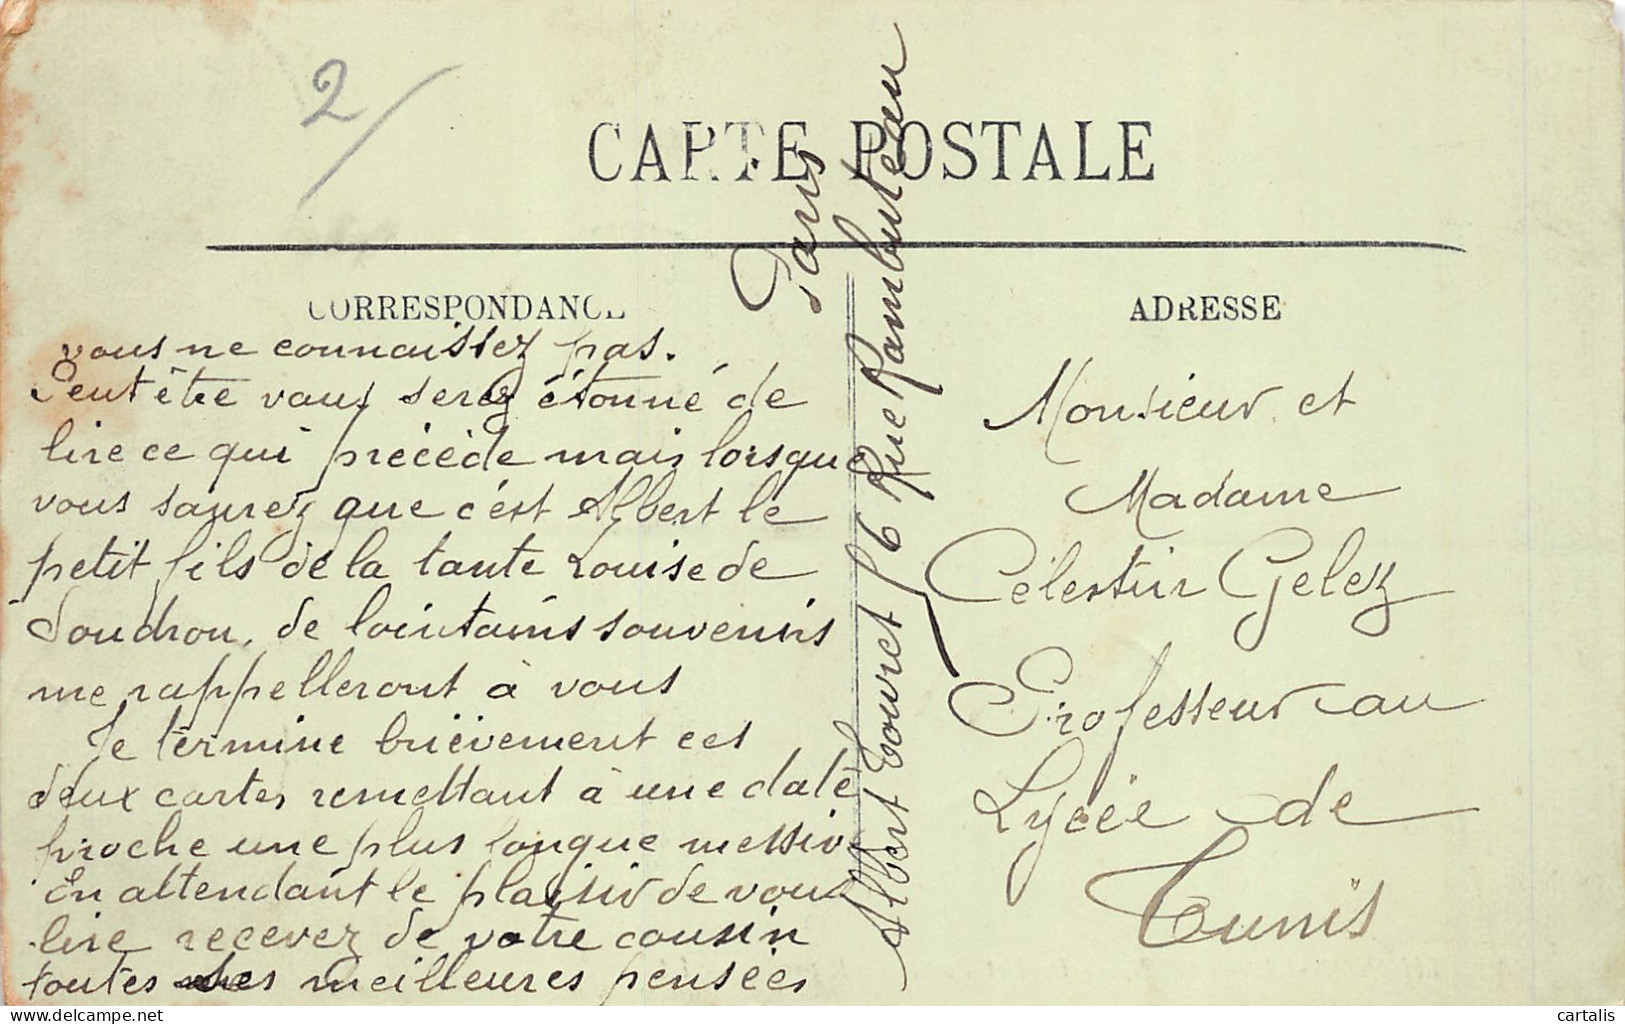 2/
CARTE POSTALE
CORRESPONDANCE
vous ne connaissez pas.
Peut être vous serez étonné de
lire ce qui précède mais lorsque
vous saurez que c'est Albert le
petit fils de la tante Louise de
Soudron, de lointains souvenirs
me rappelleront à vous
Je termine brièvement ces
deux cartes remettant à une date
proche une plus longue messive
En attendant le plaisir de vous
lire recevez de votre cousin
toutes ses meilleures pensées
Albert Touret 56 Rue Rambuteau
Paris
ADRESSE
Monsieur et
Madame
Célestin Gelez
Professeur au
Lycée de
Tunis
delcampe.net
cartalis